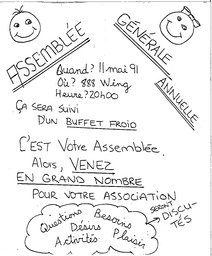 ASSEMBLÉE
GÉNÉRALE
ANNUELLE
Quand? 11 mai 91
Où? 888 Wing
Heure? 20h00
ÇA SERA SUIVI
D'UN BUFFET FROID
C'EST Votre Assemblée.
Alors, VENEZ
EN GRAND NOMBRE
POUR VOTRE ASSOCIATION
Questions Besoins
Désirs Plaisirs
Activités
SERONT
DISCU-
TÉS